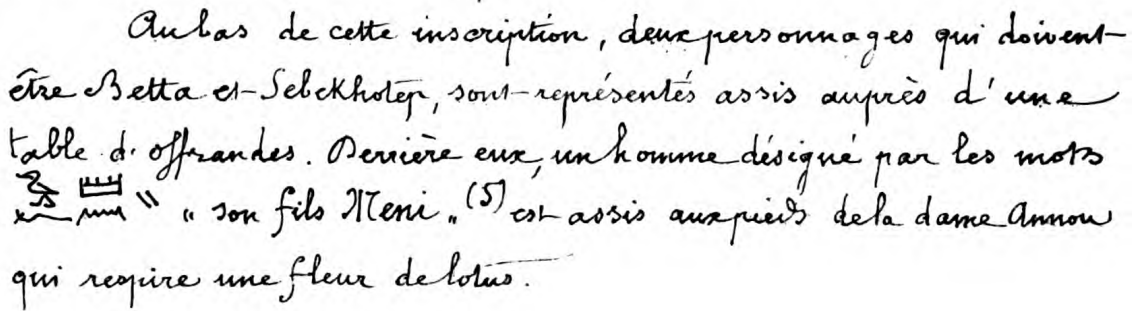 Au bas de cette inscription, deux personnages qui doivent
être Betta et Sebekhotep, sont représentés assis auprès d'une
table d'offrandes. Derrière eux, un homme désigné par les mots
𓅭𓆑 𓏠𓈖 𓏭 " son fils Meni " (5) est assis aux pieds de la dame Annou
qui respire une fleur de lotus.